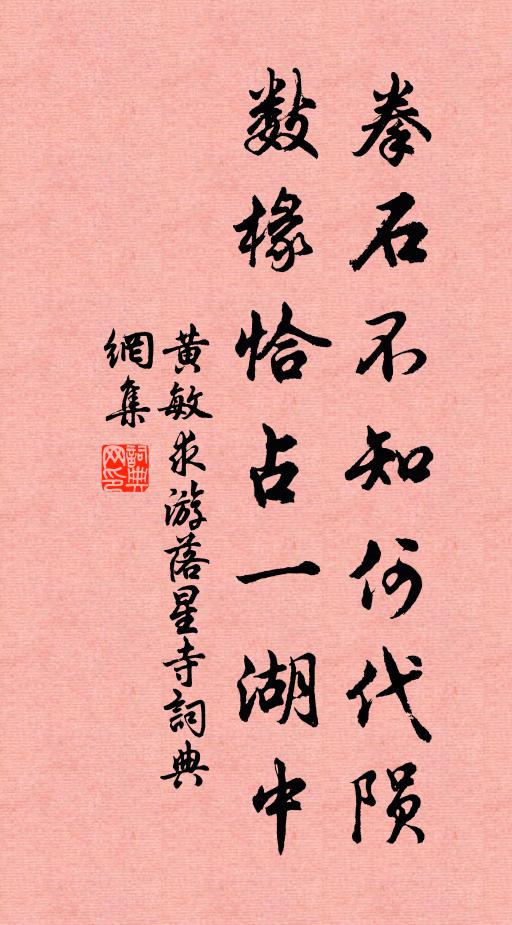 拳石不知何代陨
数椽恰占一湖中
黄敏求游落星寺詞典
網集
詞典
网印